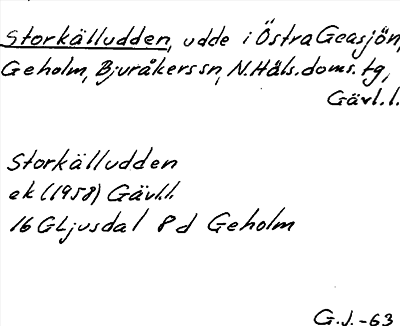 Storkälludden, udde i Östra Geasjön,
Geholm, Bjuråkers sn, N. Häls. doms. tg,
Gävl. l.
Storkälludden
ek (1958) Gävl.l.
16 G Ljusdal 8 d Geholm
G.J.-63